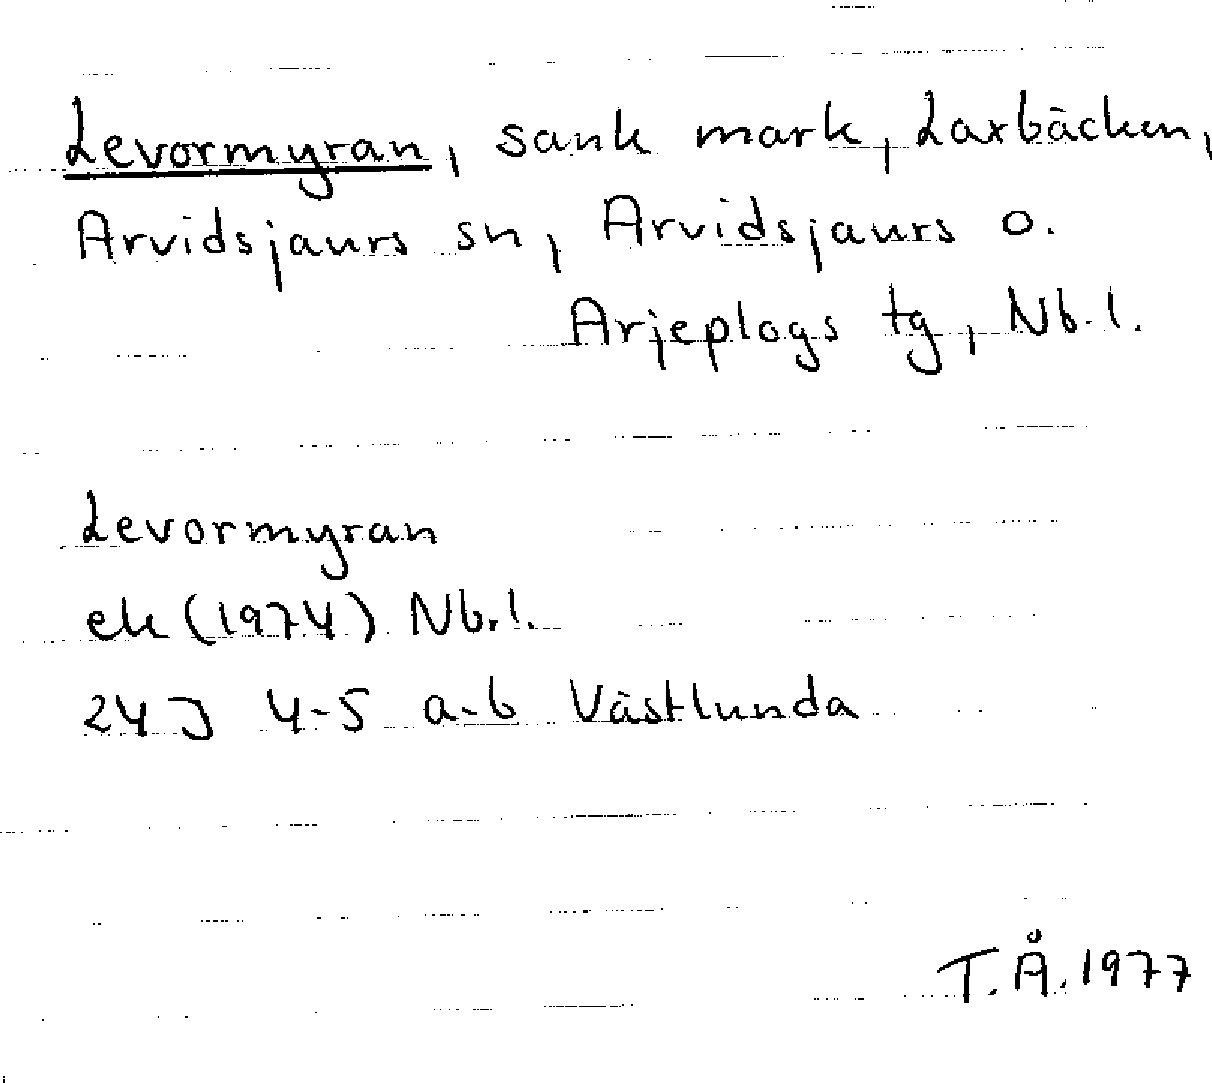 Levormyran, sank mark, Laxbäcken,
Arvidsjaurs sn, Arvidsjaurs o.
Arjeplogs tg, Nb.l.
Levormyran
ek (1974) Nb.l.
24J 4-5 a-b Västlunda
T.Å. 1977